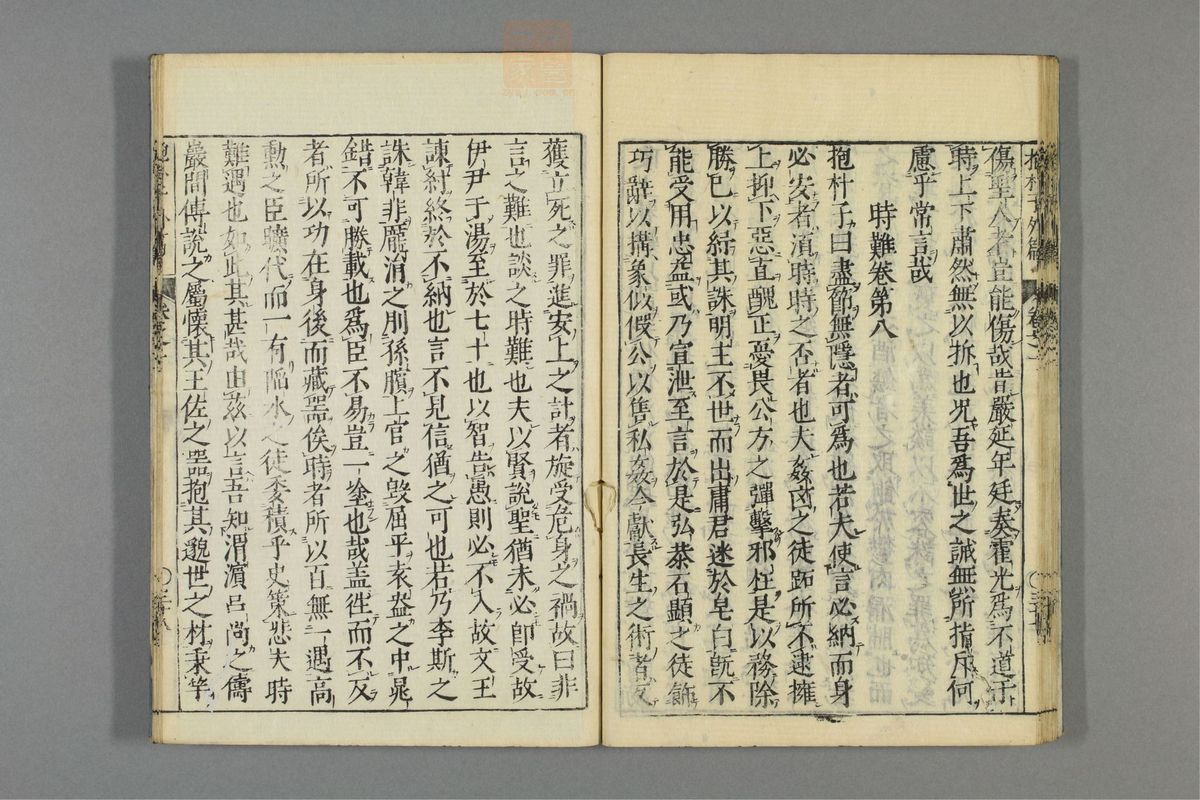 傷聖人者豈能傷哉昔嚴延年廷奏霍光爲不道于
時上下肅然無以折也况吾爲世之誠無所指斥何
慮乎常言哉
時難卷第八
抱朴子曰盡節無隱者可爲也若夫使言必納而身
必安者湏時時之否者也夫姦凶之徒妬所不逮擁
上抑下惡直醜正憂畏公方之彈擊邪枉是以務除
勝巳以紓其誅明王不世而出庸君迷於皂白旣不
能受用忠益或乃宣泄至言於是弘恭石顯之徒飾
巧辭以搆象似假公以售私姦令獻長生之術者反
獲立死之罪進安上之計者旋受危身之禍故曰非
言之難也談之時難也夫以賢說聖猶未必即受故
伊尹于湯至於七十也以智告愚則必不入故文王
諫紂終於不納也言不見信猶之可也若乃李斯之
誅韓非龐涓之刖孫臏上官之毀屈平袁盎之中晁
錯不可勝載也爲臣不易豈一塗也哉盖徃而不反
者所以功在身後而藏噐俟時者所以百無一遇高
勳之臣曠代而一有陷氷之徒委積乎史策悲夫時
難遇也如此其甚哉由兹以言吾知渭濵吕尚之儔
嚴間傅說之屬懷其王佐之噐抱其邈世之材秉竿